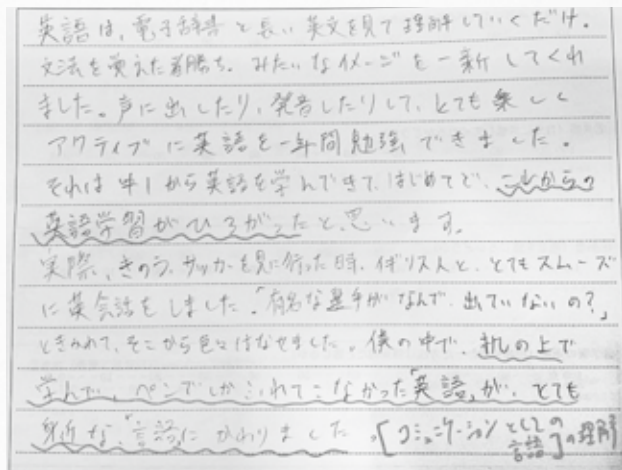 英語は、電子辞書と長い英文を見て理解していくだけ。
文法を覚えた者勝ち。みたいなイメージを一新してくれ
ました。声に出したり、発音したりして、とても楽しく
アクティブに英語を一年間勉強できました。
それは中1から英語を学んできて、はじめてで、これからの
英語学習がひろがったと、思います。
実際、きのう、サッカーを見に行った時、イギリス人と、とてもスムーズ
に英会話をしました。「有名な選手がなんで、出ていないの?」
ときかれて、そこから色々はなせました。僕の中で、机の上で
学んで、ペンでしかふれてこなかった「英語」が、とても
身近な、「言語」にかわりました。[コミュニケーションとしての
言語]の理解